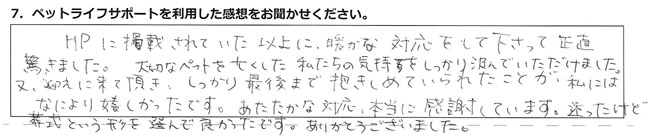 7. ペットライフサポートを利用した感想をお聞かせください。
HPに掲載されていた以上に、暖かな対応をして下さって正直
驚きました。 大切なペットを亡くした私たちの気持ちをしっかり汲んでいただけました。
又、迎えに来て頂き、しっかり最後まで抱きしめていられたことが、私には
なにより嬉しかったです。あたたかな対応、本当に感謝しています。迷ったけど
葬式という形を選んで良かったです。ありがとうございました。